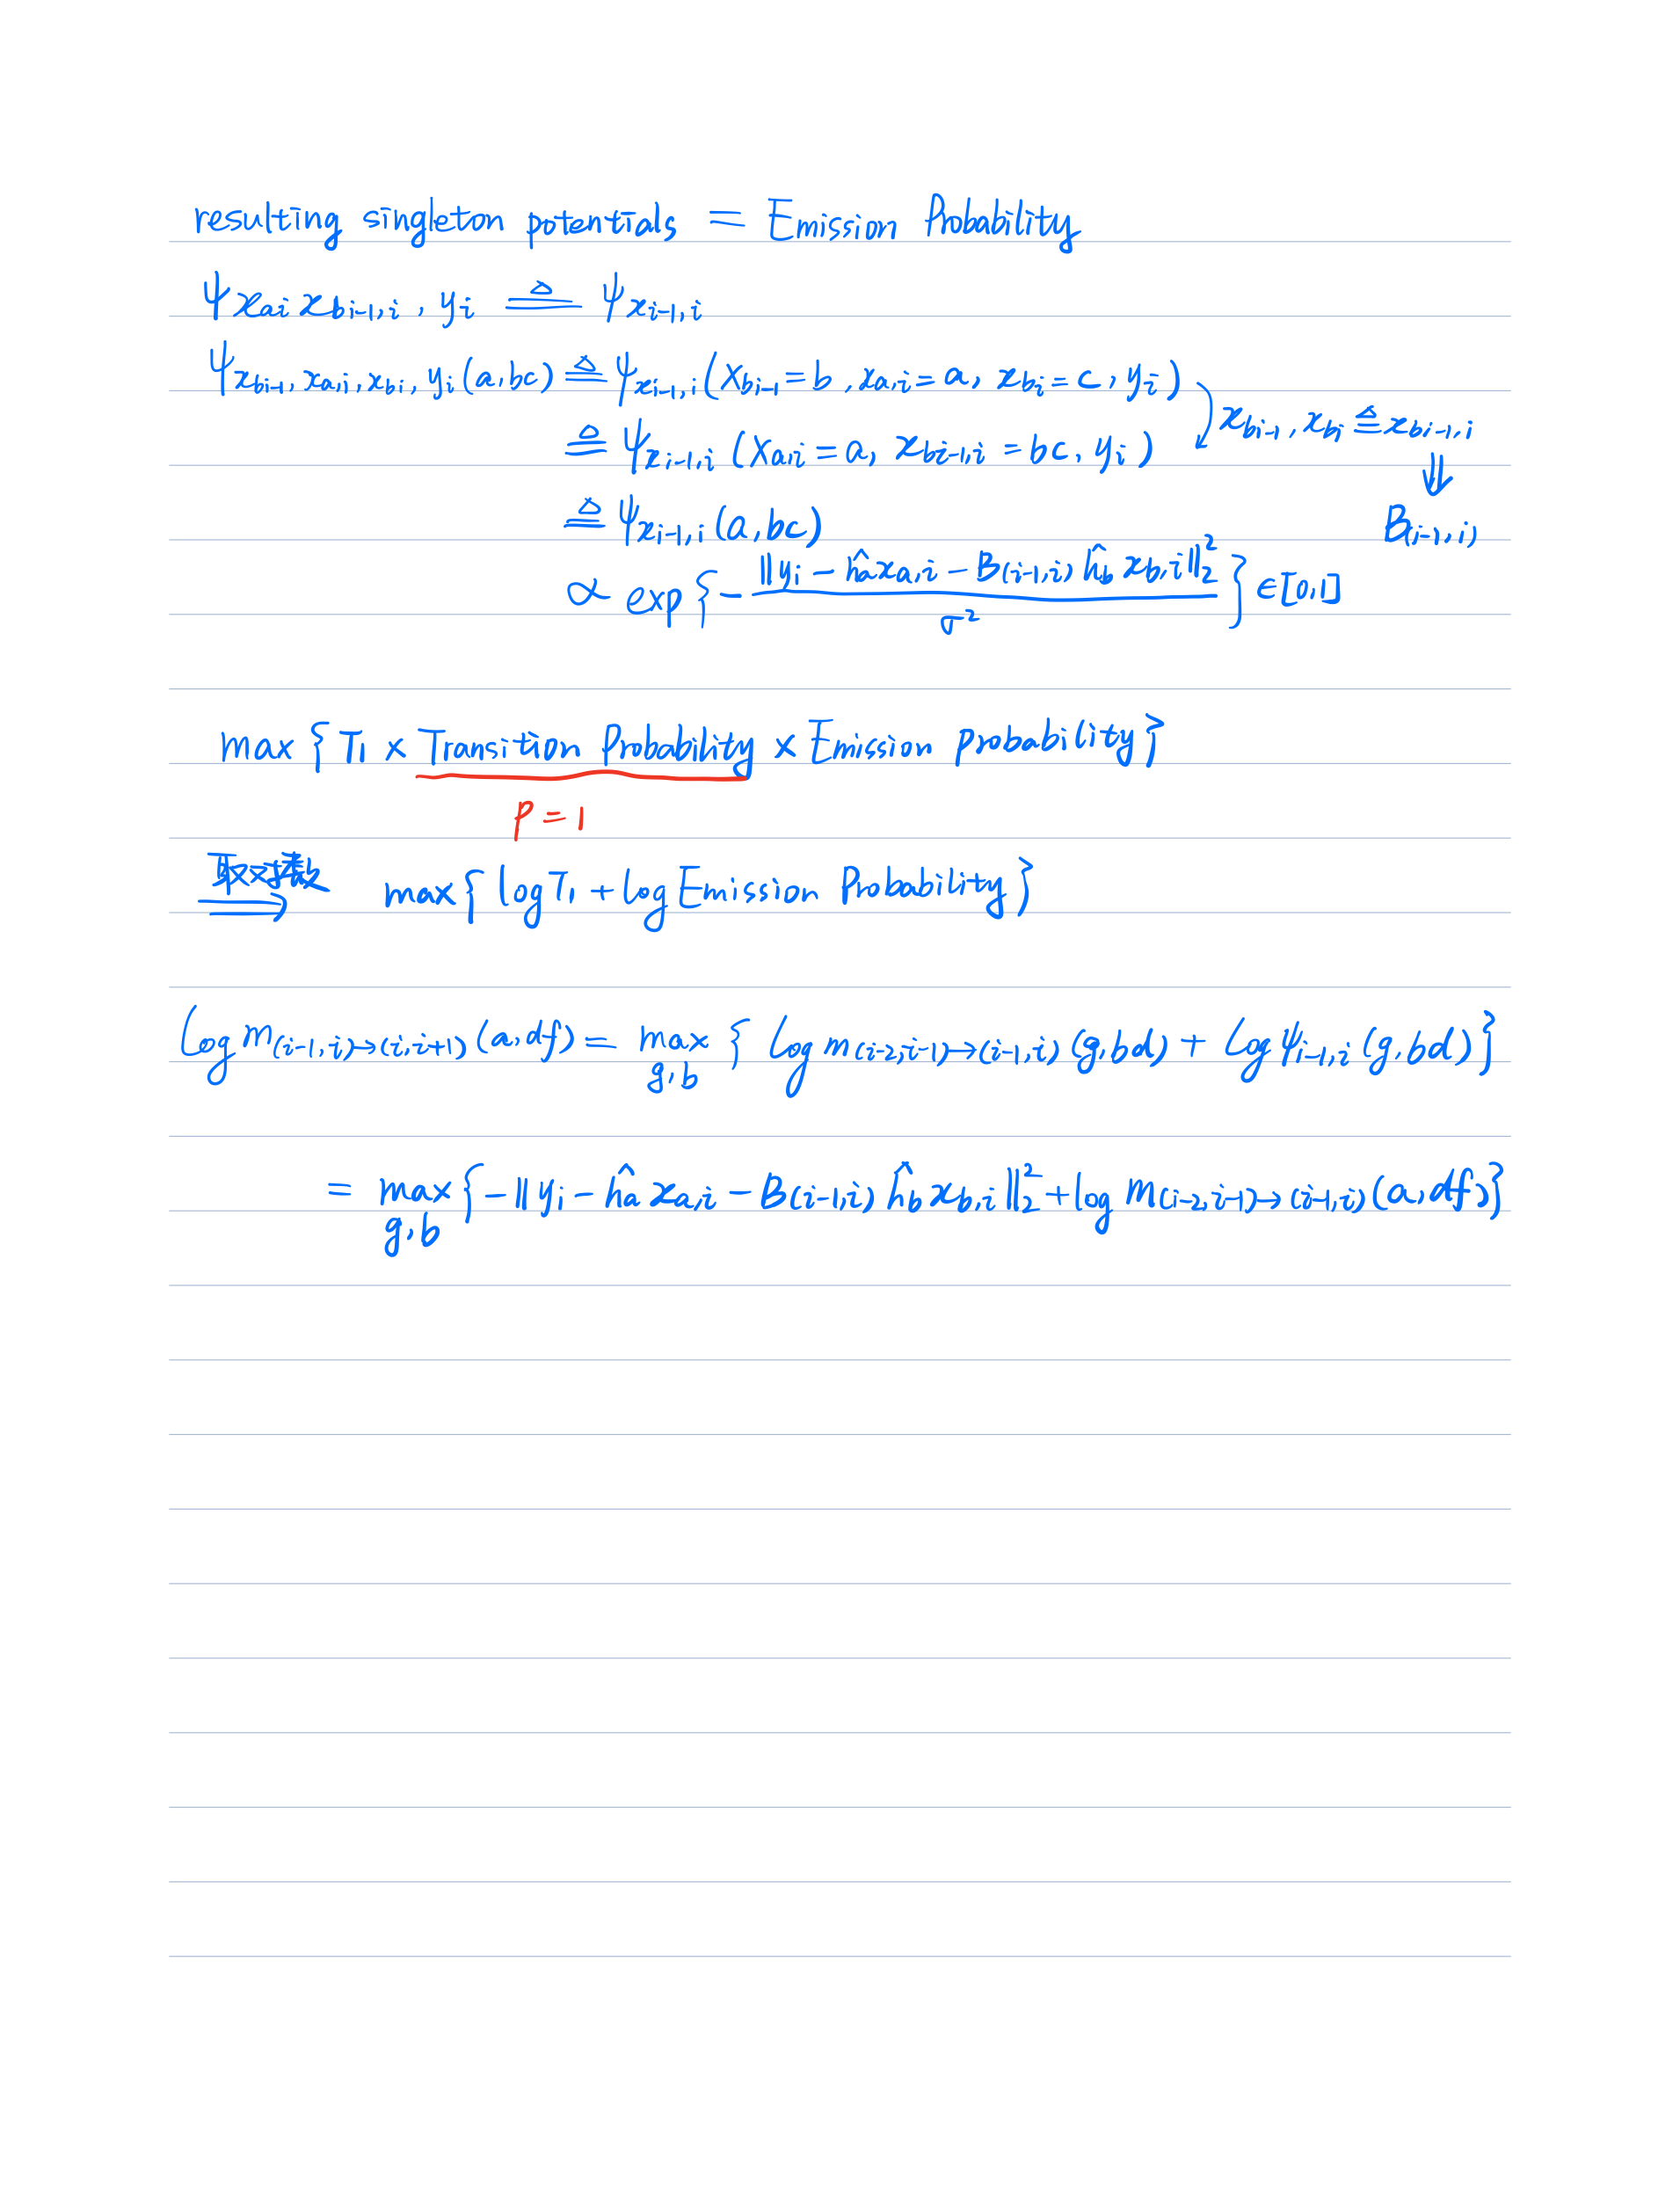 resulting singleton potentials = Emission Probability
ψ_{x_{ai} x_{b i-1,i}, y_i} ≜ ψ_{x_{i-1,i}}
ψ_{x_{b i-1}, x_{a,i}, x_{b i}, y_i}(a,bc) ≜ ψ_{x_{i-1,i}}(X_{b i-1}=b, x_{a,i}=a, x_{b i}=c, y_i)
x_{b i-1}, x_{b i} ≜ x_{b i-1,i}
≜ ψ_{x_{i-1,i}}(X_{a,i}=a, x_{b i-1,i}=bc, y_i)
⇓
≜ ψ_{x_{i-1,i}}(a,bc)
B_{(i-1,i)}
∝ exp{-\frac{‖y_i - \hat{h}_a x_{a,i} - B_{(i-1,i)} \hat{h}_b x_{b,i}‖_2^2}{σ^2}} ∈[0,1]
max{T_1 × Transition Probability × Emission probability}
P=1
取对数 ⇒ max{log T_1 + log Emission Probability}
log m_{(i-1,i)→(i,i+1)}(a,df) = max_{g,b}{log m_{(i-2,i-1)→(i-1,i)}(g,bd) + log ψ_{i-1,i}(g,bd)}
= max_{g,b}{-‖y_i - \hat{h}_a x_{a,i} - B_{(i-1,i)} \hat{h}_b x_{b,i}‖_2^2 + log m_{(i-2,i-1)→(i-1,i)}(a,df)}